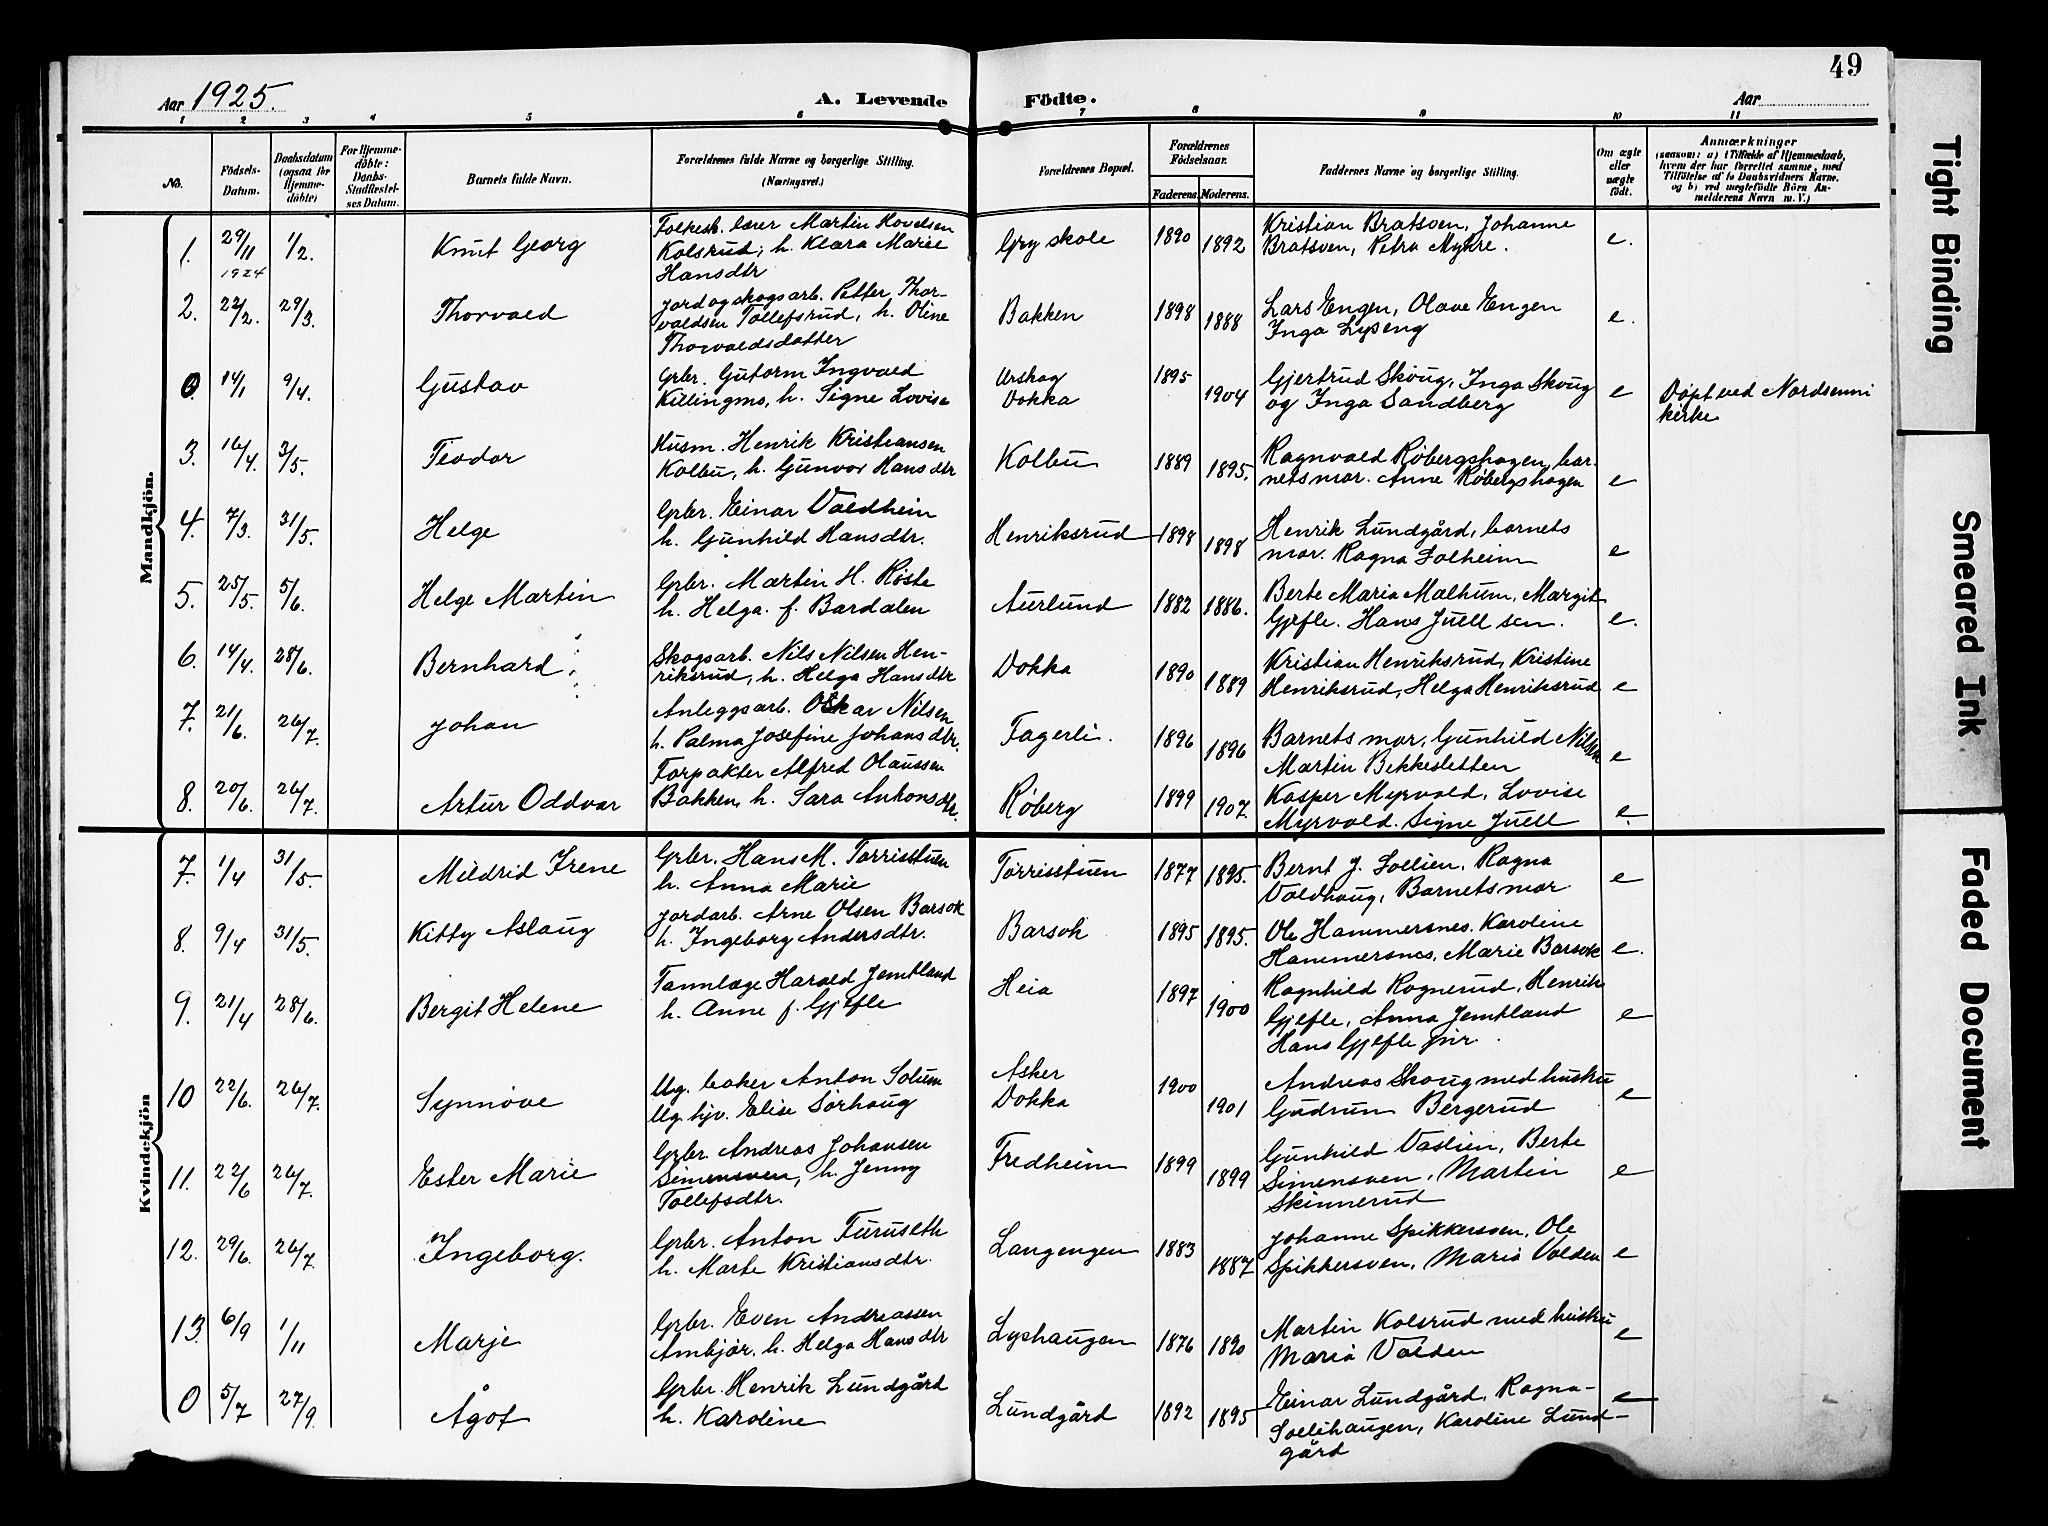 49
Aar 1925.
A. Levende Födte.
Aar
1 2 3 4 5 6 7 8 9 10 11
No.
Födsels-Datum.
Daabsdatum (ogsaa for Hjemme-döbte)
For Hjemme-döbte: Daabs-Stadfæstel-ses Datum.
Barnets fulde Navn.
Forældrenes fulde Navne og borgerlige Stilling.
(Næringsvei.)
Forældrenes Bopæl.
Forældrenes Födselsaar.
Faderens. Moderens.
Faddernes Navne og borgerlige Stilling.
Om ægte eller uægte födt.
Anmærkninger
(saasom: a) i Tilfælde af Hjemmedaab,
hvem der har forrettet samme, med
Tilföielse af to Daabsvidners Navne,
og b) ved uægtefödte Börn An-
melderens Navn m. V.)
Mandkjön.
1. 29/11 1924 1/2. Knut Georg
Folkesk. lærer Martin Hovelsen
Kolsrud, h. Klara Marie
Hansdtr
Gry skole 1890 1892
Kristian Bratsven, Johanne
Bratsven, Petra Myhre.
e.
2. 22/2. 29/3. Thorvald
Jord og skogsarb. Petter Thor-
valdsen Tollefsrud, h. Oline
Thorvaldsdatter
Bakken 1898 1888
Lars Engen, Olave Engen
Inga Lyseng
e.
0 14/1 9/4. Gustav
Grbr. Gutorm Ingvald
Killingmo, h. Signe Lovise
Urskog
Dokka
1895 1904
Gjertrud Skoug, Inga Skoug
og Inga Sandberg
e
Døpt ved Nordsinni
kirke
3. 16/4. 3/5. Teodor
Husm. Henrik Kristiansen
Kolbu, h. Gunvor Hansdtr
Kolbu 1889 1895.
Ragnvald Røbergshagen, bar-
nets mor. Anne Røbergshagen
e
4. 7/3. 31/5. Helge
Grbr. Einar Valdheim
h. Gunhild Hansdtr.
Henriksrud 1898 1898
Henrik Lundgård, barnets
mor. Ragna Solheim
e
5. 25/5. 5/6. Helge Martin
Grbr. Martin H. Røste
h. Helga f. Bardalen
Aurlund 1882 1886.
Berte Maria Mælhum, Margit
Gjefle. Hans Juell sen.
e.
6. 14/4. 28/6. Bernhard
Skogsarb. Nils Nilsen Hen-
riksrud, h. Helga Hansdtr
Dokka 1890 1889
Kristian Henriksrud, Kristine
Henriksrud, Helga Henriksrud
e
7. 21/6. 26/7. Johan
Anleggsarb. Oskar Nilsen
h. Palma Josefine Johansdtr.
Fagerli. 1896 1896
Barnets mor, Gunhild Nilsen
Martin Bekkesletten
e
8. 20/6. 26/7. Artur Oddvar
Forpakter Alfred Olaussen
Bakken, h. Sara Antonsdtr.
Røberg 1899 1907.
Kasper Myrvold, Lovise
Myrvold. Signe Juell
e.
Kvindekjön
7. 1/4 31/5. Mildrid Irene
Grbr. Hans M. Torrisstuen
h. Anna Marie
Torrisstuen 1877 1895.
Bernt J. Sollien, Ragna
Valdhaug, Barnets mor
e
8. 9/4 31/5. Kitty Aslaug
Jordarb. Arne Olsen Barsok
h. Ingeborg Andersdtr.
Barsok 1895 1895.
Ole Hammersnes. Karoline
Hammersnes, Marie Barsok
e.
9. 21/4 28/6. Bergit Helene
Tannlæge Harald Jemtland
h. Anne f. Gjefle
Heia 1897 1900
Ragnhild Rognerud, Henrik
Gjefle, Anna Jemtland
Hans Gjefle jnr.
e
10 22/6. 26/7. Synnøve
Ug. baker Anton Solum
Ug. hjv. Elise Sørhaug
Asker
Dokka
1900 1901
Andreas Skoug med hustru
Gudrun Bergerud
e
11. 22/6 26/7. Ester Marie
Grbr. Andreas Johansen
Simensven, h. Jenny
Tollefsdtr.
Fredheim 1899 1899
Gunhild Vaslien, Berte
Simensven, Martin
Skinnerud
e
12. 29/6. 26/7. Ingeborg.
Grbr. Anton Furuseth
h. Marte Kristiansdtr.
Langengen 1883 1887
Johanne Spikkersven, Ole
Spikkersven, Maria Volden
e
13. 6/9 1/11 Marje
Grbr. Even Andreassen
Ambjør, h. Helga Hansdtr
Lyshaugen 1876 1890
Martin Kolsrud med hustru
Maria Volden
e
0 5/7 27/9. Ågot
Grbr. Henrik Lundgård
h. Karoline
Lundgård 1892 1895
Einar Lundgård, Ragna
Sollihaugen, Karoline Lund-
gård
e
Tight Binding
Smeared Ink
Faded Document